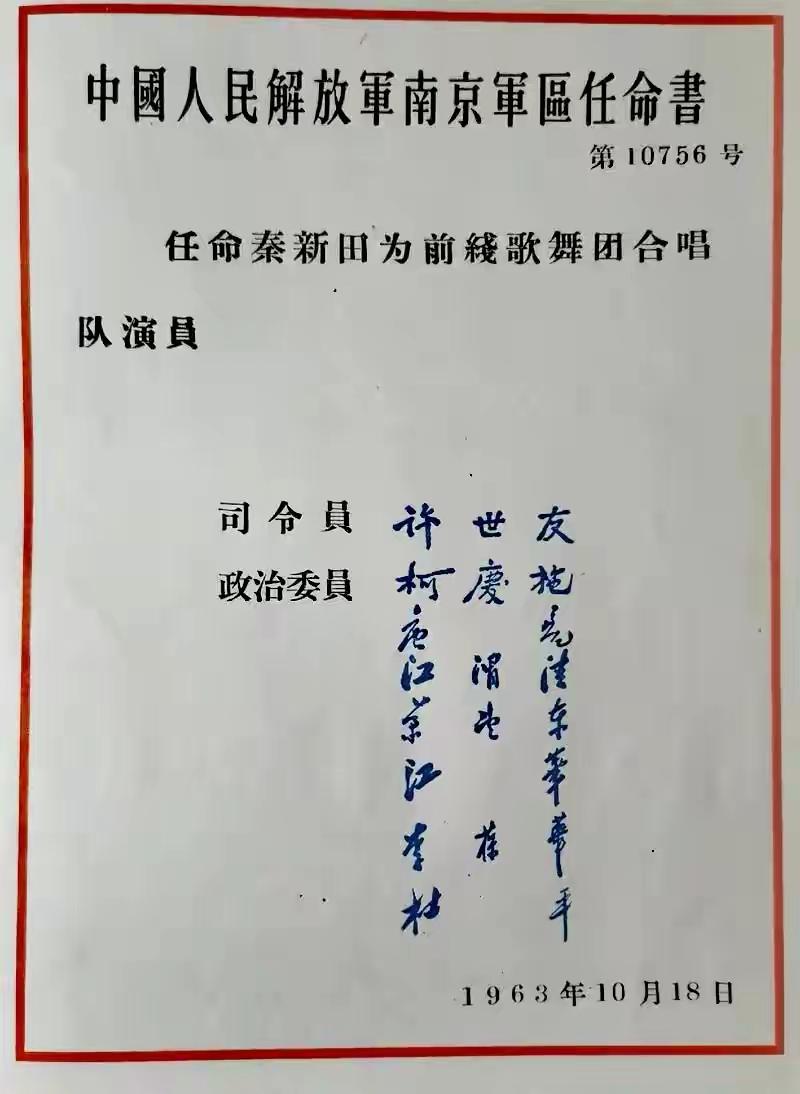 中國人民解放軍南京軍區任命書
第 10756 号
任命秦新田为前綫歌舞团合唱
队演員
司令員 许世友
政治委員 柯慶施
唐亮
江渭清
萧望东
江華
李葆華
杜平
1963年10月18日